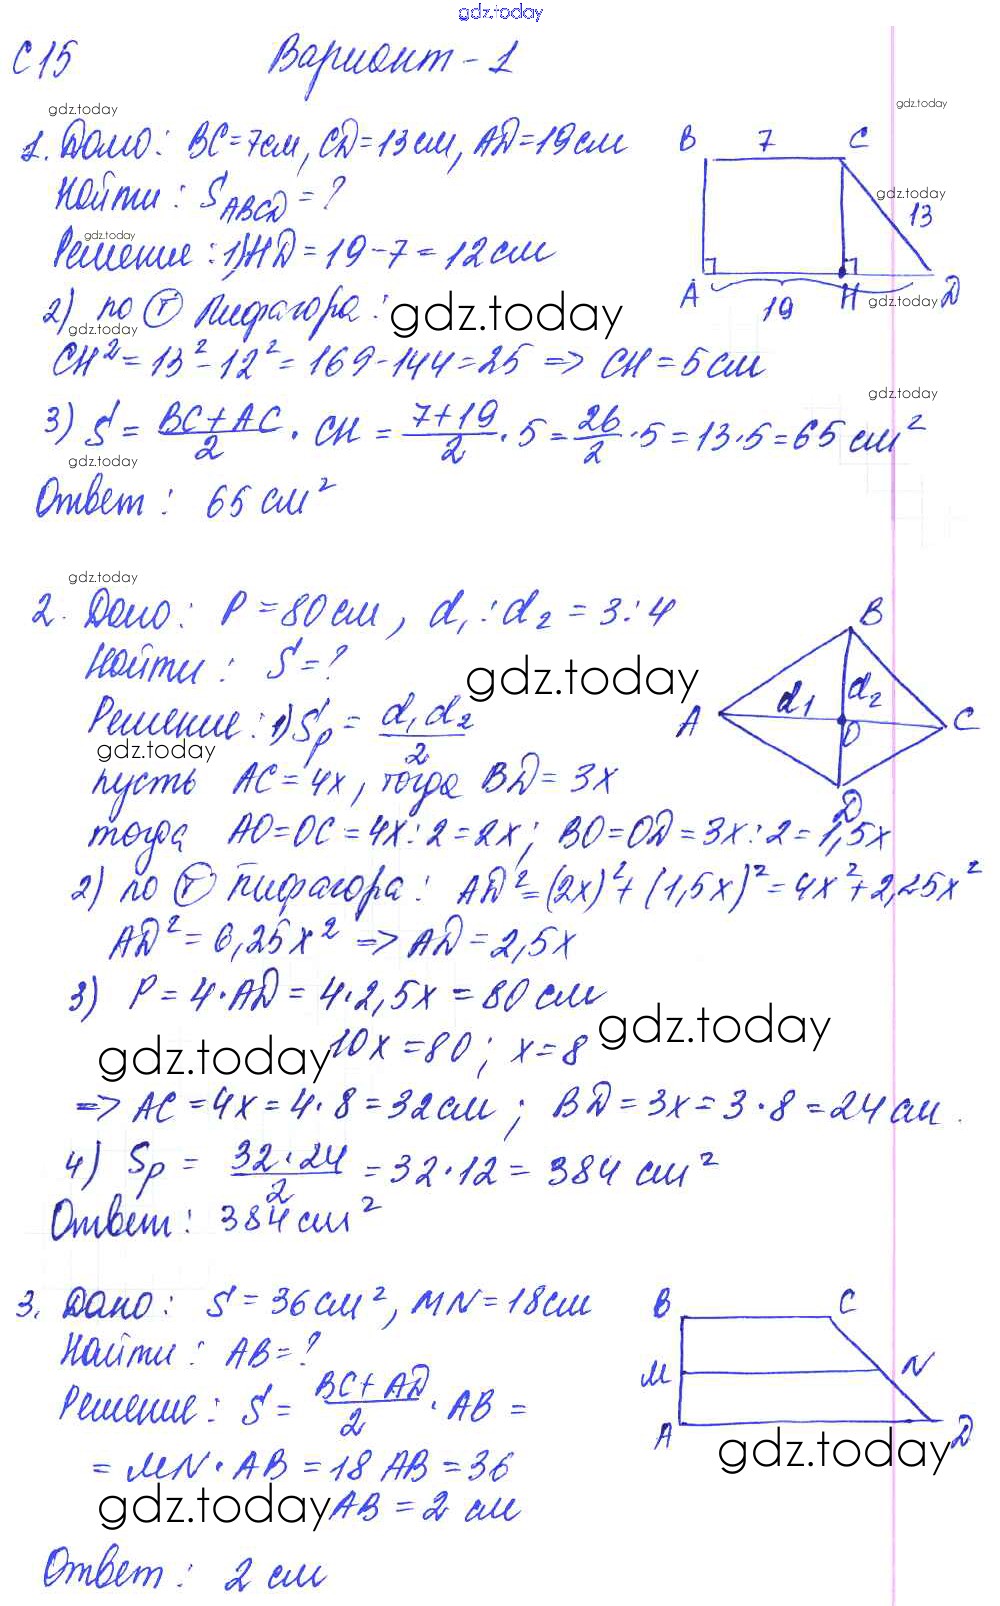 gdz.today
С15 Вариант-1
gdz.today gdz.today
1. Дано: BC=7см, CD=13см, AD=19см
B 7 C
Найти: S_ABCD=?
gdz.today
13
gdz.today
Решение: 1) HD=19-7=12см
A 19 H gdz.today D
2) по Т Пифагора: gdz.today
gdz.today
CH²=13²-12²=169-144=25 => CH=5см
gdz.today
3) S = (BC+AC)/2 · CH = (7+19)/2 · 5 = 26/2 · 5 = 13·5 = 65 см²
gdz.today
Ответ: 65 см²
gdz.today
2. Дано: P=80см, d₁:d₂=3:4
B
Найти: S=? gdz.today
A d₁ d₂ O C
D
Решение: 1) Sp = d₁d₂/2
gdz.today
пусть AC=4x, тогда BD=3x
тогда AO=OC=4x:2=2x; BO=OD=3x:2=1,5x
2) по Т Пифагора: AD²=(2x)²+(1,5x)²=4x²+2,25x²
AD²=6,25x² => AD=2,5x
3) P=4·AD=4·2,5x=80см
gdz.today
gdz.today 10x=80; x=8
=> AC=4x=4·8=32см; BD=3x=3·8=24см.
4) Sp = 32·24/2 = 32·12 = 384 см²
Ответ: 384см²
3. Дано: S=36см², MN=18см
B C
Найти: AB=?
M N
Решение: S = (BC+AD)/2 · AB =
A D
gdz.today
= MN·AB=18 AB=36
gdz.today AB=2 см
Ответ: 2 см